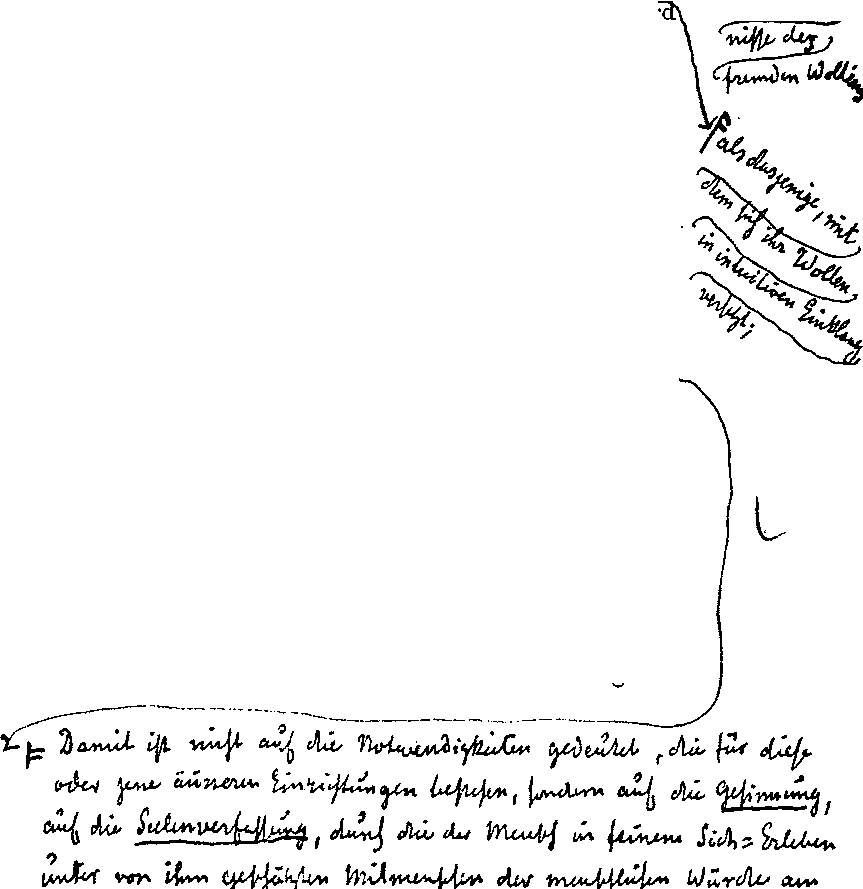 d
nisse des
fremden Wollens
als dasjenige, mit
dem sich ihr Wollen
in intuitiven Einklang
versetzt;
Damit ist nicht auf die Notwendigkeiten gedeutet, die für diese
oder jene äusseren Einrichtungen bestehen, sondern auf die Gesinnung,
auf die Seelenverfassung, durch die der Mensch in seinem Sich=Erleben
unter von ihm geschätzten Mitmenschen der menschlichen Würde am